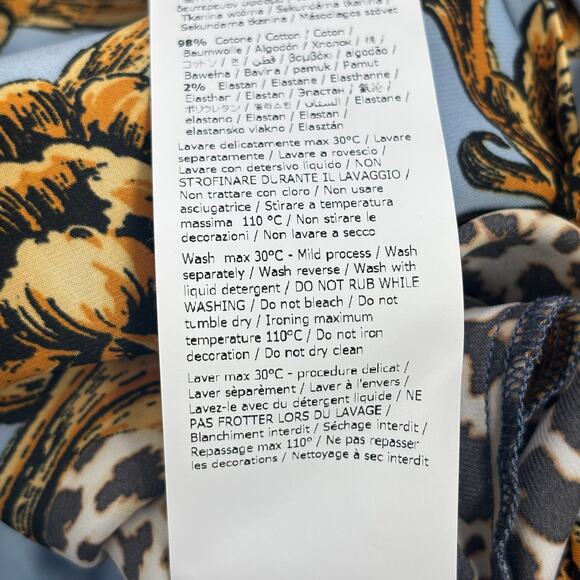 Tkanina wzórna / Sekundárna tkanina /
Sekundarna tkanina / Másodlagos szövet
98% Cotone / Cotton / Coton /
Baumwolle / Algodón / Хлопок /
コットン / 면 / قطن / βαμβάκι / algodão /
Bawełna / Bavlna / pamuk / Pamut
2% Elastan / Elastane / Elasthanne /
Elasthan / Elastan / Эластан /
ポリウレタン / 엘라스틴 / الاستان / Elastane /
elastano / Elastan / Elastan /
elastansko vlakno / Elasztán
Lavare delicatamente max 30°C / Lavare
separatamente / Lavare a rovescio /
Lavare con detersivo liquido / NON
STROFINARE DURANTE IL LAVAGGIO /
Non trattare con cloro / Non usare
asciugatrice / Stirare a temperatura
massima 110 °C / Non stirare le
decorazioni / Non lavare a secco
Wash max 30°C - Mild process / Wash
separately / Wash reverse / Wash with
liquid detergent / DO NOT RUB WHILE
WASHING / Do not bleach / Do not
tumble dry / Ironing maximum
temperature 110°C / Do not iron
decoration / Do not dry clean
Laver max 30°C - procedure delicat /
Laver sèparèment / Laver à l'envers /
Lavez-le avec du détergent liquide / NE
PAS FROTTER LORS DU LAVAGE /
Blanchiment interdit / Séchage interdit /
Repassage max 110° / Ne pas repasser
les decorations / Nettoyage à sec interdit